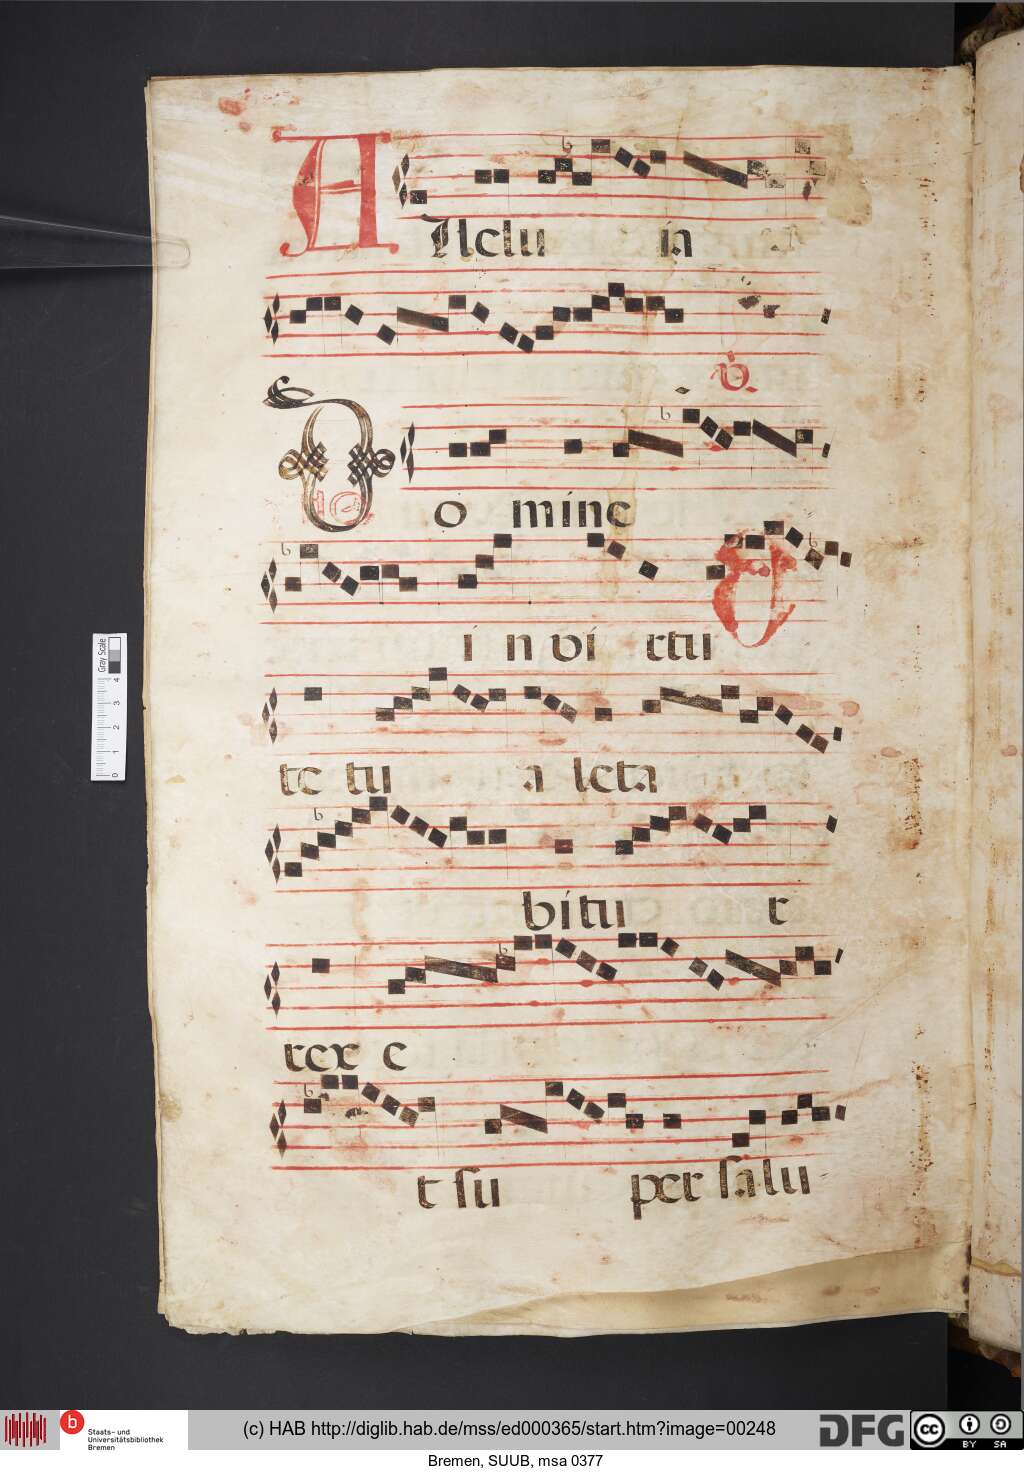 Allelu ia
V.
Do mine
in virtu
te tu a leta
bitu r
rex e
t su per salu
Gray Scale
4
3
2
1
0
b Staats- und
Universitätsbibliothek
Bremen
(c) HAB http://diglib.hab.de/mss/ed000365/start.htm?image=00248
DFG
cc BY SA
Bremen, SUUB, msa 0377